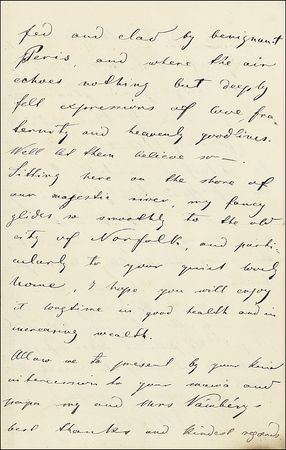 fed and clad by benignant
Peris, and where the air
echoes nothing but deeply
felt expressions of love, fra-
ternity and heavenly goodlines.
Well let them believe so —.
Sitting here on the shore of
our majestic river, my fancy
glides so smoothly to the old
city of Norfolk, and parti-
cularly to your quiet lovely
home, I hope you will enjoy
it longtime in good health and in
increasing wealth.
Allow me to present by your kind
intercession to your mama and
papa my and Mrs Vámbérys
best thanks and kindest regards